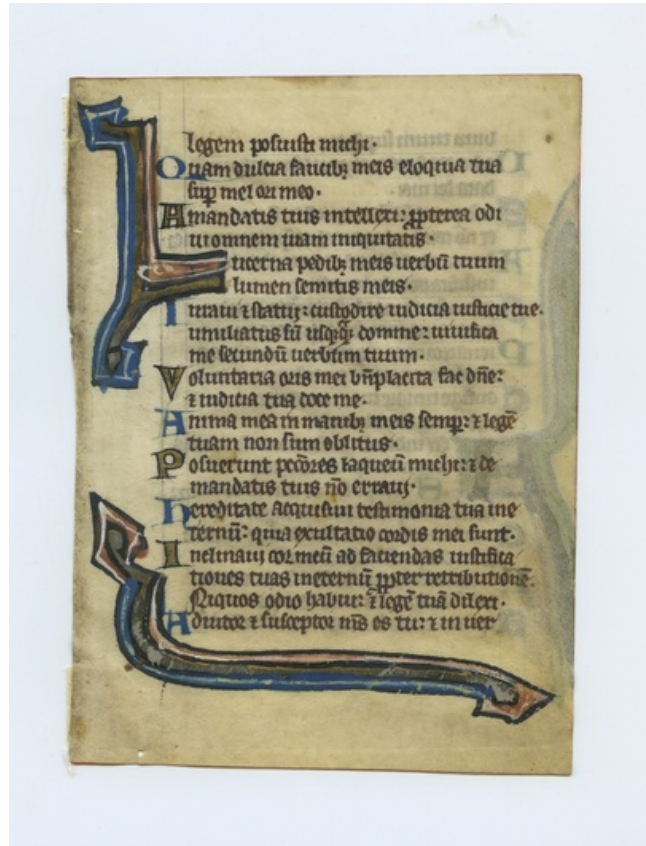 legem posuisti michi.
Quam dulcia faucibꝫ meis eloquia tua
sup̱ mel ori meo.
A mandatis tuis intellexi: ꝓpterea odi
ui omnem uiam iniquitatis.
Lucerna pedibꝫ meis uerbū tuum
lumen semitis meis.
Iuraui ⁊ statui: custodire iudicia iusticie tue.
umiliatus sū usqꝫqꝫ domine: uiuifica
me secundū uerbum tuum.
Voluntaria oris mei bn̄placita fac dn̄e:
⁊ iudicia tua doce me.
Anima mea in manibꝫ meis semp̱: ⁊ legē
tuam non sum oblitus.
Posuerunt pecc̄ores laqueū michi: ⁊ de
mandatis tuis nō erraui.
hereditate acquisiui testimonia tua ine
ternū: quia exultatio cordis mei sunt.
Inclinaui cor meū ad faciendas iustifica
tiones tuas ineternū ꝓpter retributionē.
Niquos odio habui: ⁊ legē tuā dilexi.
Adiutor ⁊ susceptor m̄s es tu: ⁊ in uer